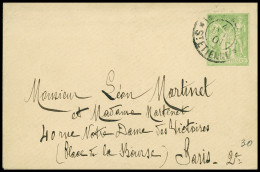 Monsieur Léon Martinet
et Madame Martinet
40 rue Notre Dame des Victoires
(Place de la Bourse)
Paris - 2e
30